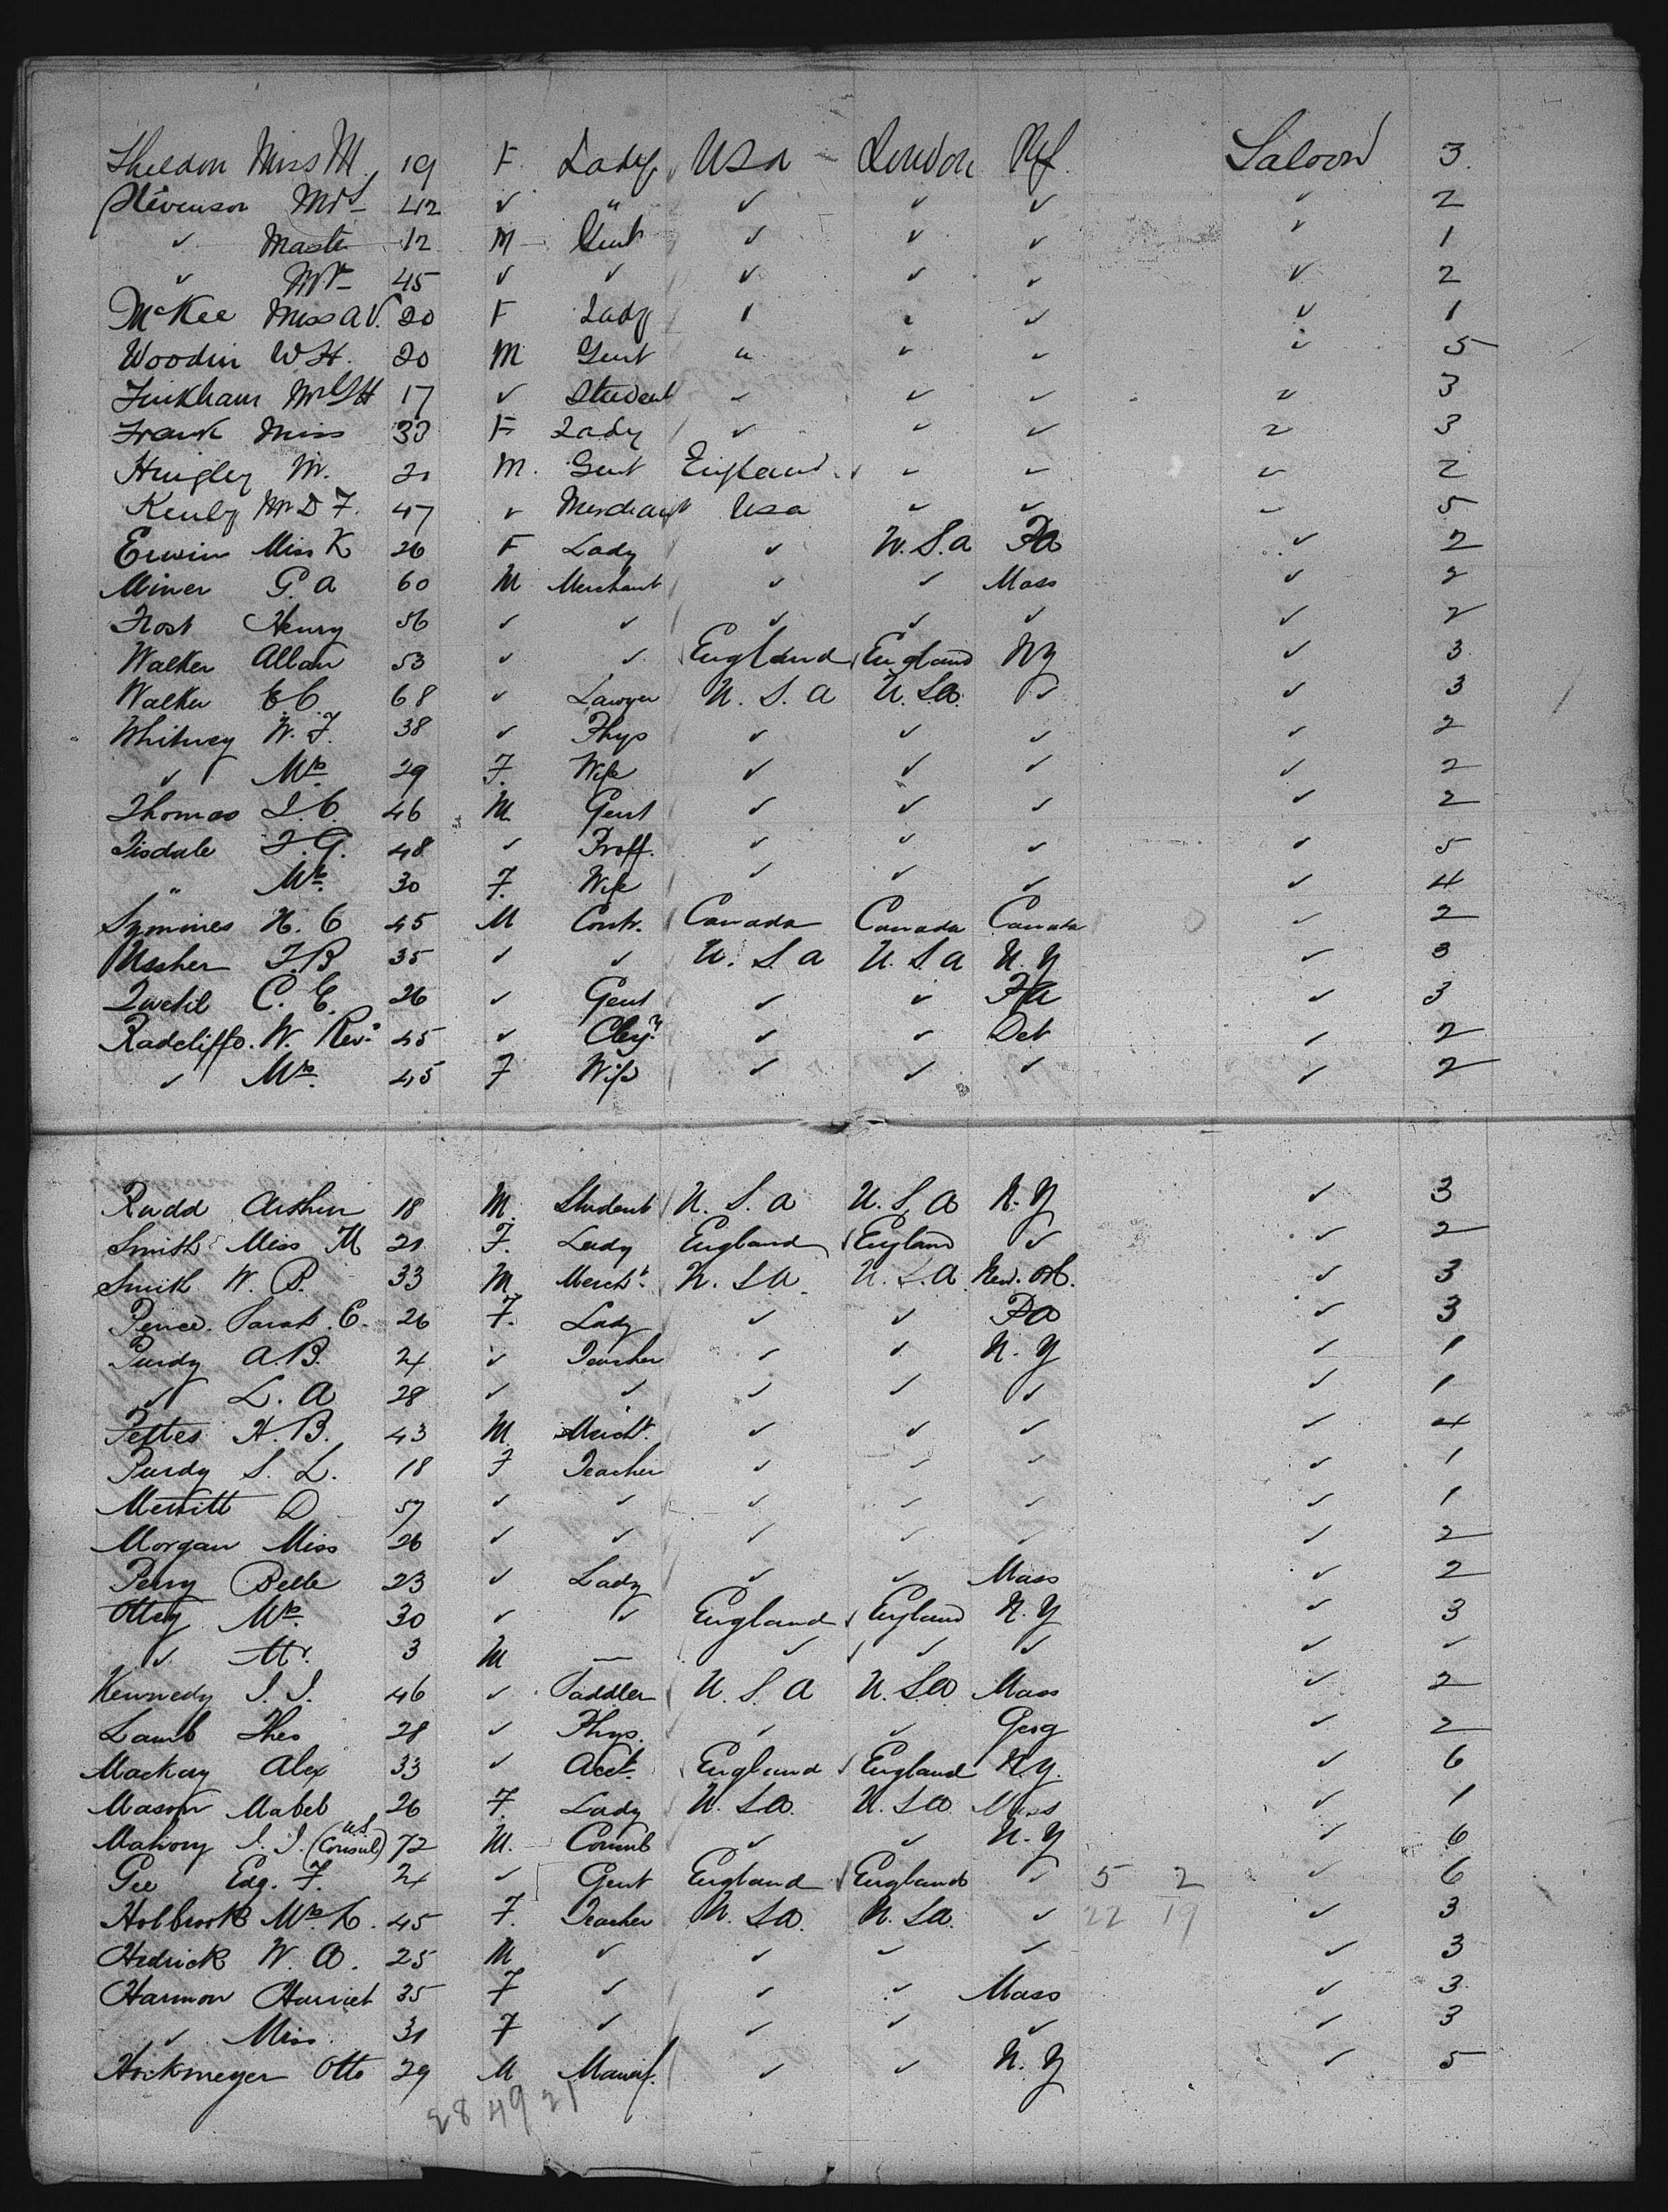 Sheldon Miss M. 19 F. Lady USA London NY. Saloon 3.
Stevenson Mrs 42 ✓ " ✓ ✓ ✓ ✓ 2
✓ Mastr 12 M Gent ✓ ✓ ✓ ✓ 1
✓ Mr 45 ✓ ✓ ✓ ✓ ✓ ✓ 2
McKee Miss A V. 20 F Lady ✓ ✓ ✓ ✓ 1
Woodin W H. 20 M Gent " ✓ ✓ ✓ 5
17 ✓ Student ✓ ✓ ✓ ✓ 3
Frank Miss 33 F Lady ✓ ✓ ✓ ✓ 3
Hingley M. M. Gent England ✓ ✓ ✓ 2
Mr D F. 47 ✓ Merchant USA ✓ ✓ ✓ 5
Erwin Miss K 26 F Lady ✓ U.S.A Pa ✓ 2
Miner G. A 60 M Merchant ✓ ✓ Mass ✓ 2
Frost Henry 56 ✓ ✓ ✓ ✓ ✓ ✓ 2
Walker Allan 53 ✓ ✓ England England NY ✓ 3
Walker E C 68 ✓ Lawyer U. S. A U. S.A. ✓ ✓ 3
Whitney W. F. 38 ✓ Phys ✓ ✓ ✓ ✓ 2
✓ Mrs 29 F. Wife ✓ ✓ ✓ ✓ 2
Thomas I. C. 46 M. Gent ✓ ✓ ✓ ✓ 2
Tisdale F. G. 48 ✓ Proff. ✓ ✓ ✓ ✓ 5
" Mrs 30 F. Wife ✓ ✓ ✓ ✓ 4
Symmes H. C 45 M Contr. Canada Canada Canada ✓ 2
Ussher F. B 35 ✓ ✓ U. S. A U. S. A N. Y ✓ 3
C. E. 26 ✓ Gent ✓ ✓ Pa ✓ 3
Radcliffe. W. Rev. 45 ✓ Clergy ✓ ✓ Det ✓ 2
✓ Mrs. 45 F Wife ✓ ✓ ✓ ✓ 2
Rudd Arthur 18 M. Student U. S. A U. S. A N. Y ✓ 3
Smith Miss M 21 F. Lady England England ✓ ✓ 2
Smith W. B. 33 M Merch't. U. S A. U. S. A New. Ol. ✓ 3
Peirce. Sarah. E. 26 F. Lady ✓ ✓ Pa ✓ 3
Purdy A. B. 24 ✓ Teacher ✓ ✓ N. Y ✓ 1
✓ L. A 28 ✓ ✓ ✓ ✓ ✓ ✓ 1
Pettes H. B. 43 M Mercht. ✓ ✓ ✓ ✓ 4
Purdy S. L. 18 F Teacher ✓ ✓ ✓ ✓ 1
Merritt D 57 ✓ ✓ ✓ ✓ ✓ ✓ 1
Morgan Miss 26 ✓ ✓ ✓ ✓ ✓ ✓ 2
Perry Belle 23 ✓ Lady ✓ ✓ Mass ✓ 2
Ottey Mrs. 30 ✓ ✓ England England N. Y ✓ 3
✓ Mr. 3 M — ✓ ✓ ✓ ✓ ✓
Kennedy J. J. 46 ✓ Saddler U. S. A U. S.A Mass ✓ 2
Lamb Theo 28 ✓ Phys. ✓ ✓ Georg ✓ 2
Mackay Alex 33 ✓ Acct. England England N.Y. ✓ 6
Mason Mabel 26 F. Lady U. S.A. U. S.A Mass ✓ 1
Mahony J. J. (US Consul) 72 M. Consul ✓ ✓ N. Y ✓ 6
Gee Edg. F. 24 ✓ Gent England England ✓ 5 2 ✓ 6
Holbrook Mrs. 45 F. Teacher U. S.A. U. S.A. ✓ 22 19 ✓ 3
Hedrick W. A. 25 M ✓ ✓ ✓ ✓ ✓ 3
Harmon Harriet 35 F ✓ ✓ ✓ Mass ✓ 3.
✓ Miss. 31 F ✓ ✓ ✓ ✓ ✓ 3
Hockmeyer Otto 29 M Manuf. ✓ ✓ N. Y ✓ 5
28 49 21